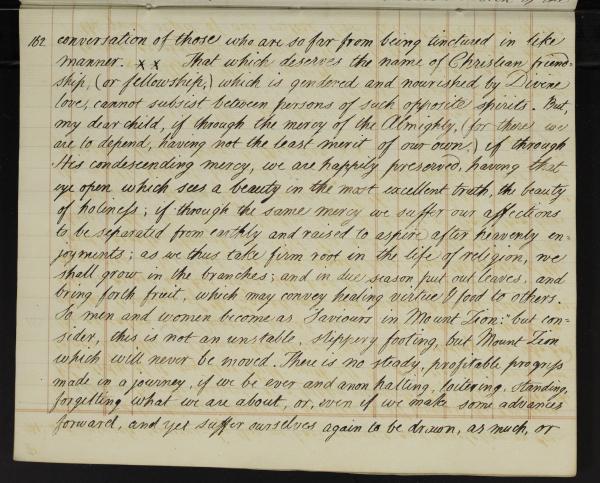 162 conversation of those who are so far from being tinctured in like
manner. x x That which deserves the name of Christian friend=
ship, (or fellowship,) which is gendered and nourished by Divine
love, cannot subsist between persons of such opposite spirits. But,
my dear child, if through the mercy of the Almighty, (for there we
are to depend, having not the least merit of our own,) if through
His condescending mercy, we are happily preserved, having that
eye open which sees a beauty in the most excellent truth, the beauty
of holiness; if through the same mercy we suffer our affections
to be separated from earthly and raised to aspire after heavenly en=
joyments; as we thus take firm root in the life of religion, we
shall grow in the branches; and in due season put out leaves, and
bring forth fruit, which may convey healing virtue & food to others.
So men and women become as Saviours in Mount Zion:" but con=
sider, this is not an unstable, slippery footing, but Mount Zion
which will never be moved. There is no steady, profitable progress
made in a journey, if we be ever and anon halting, loitering, standing,
forgetting what we are about, or, even if we make some advances
forward, and yet suffer ourselves again to be drawn, as much, or